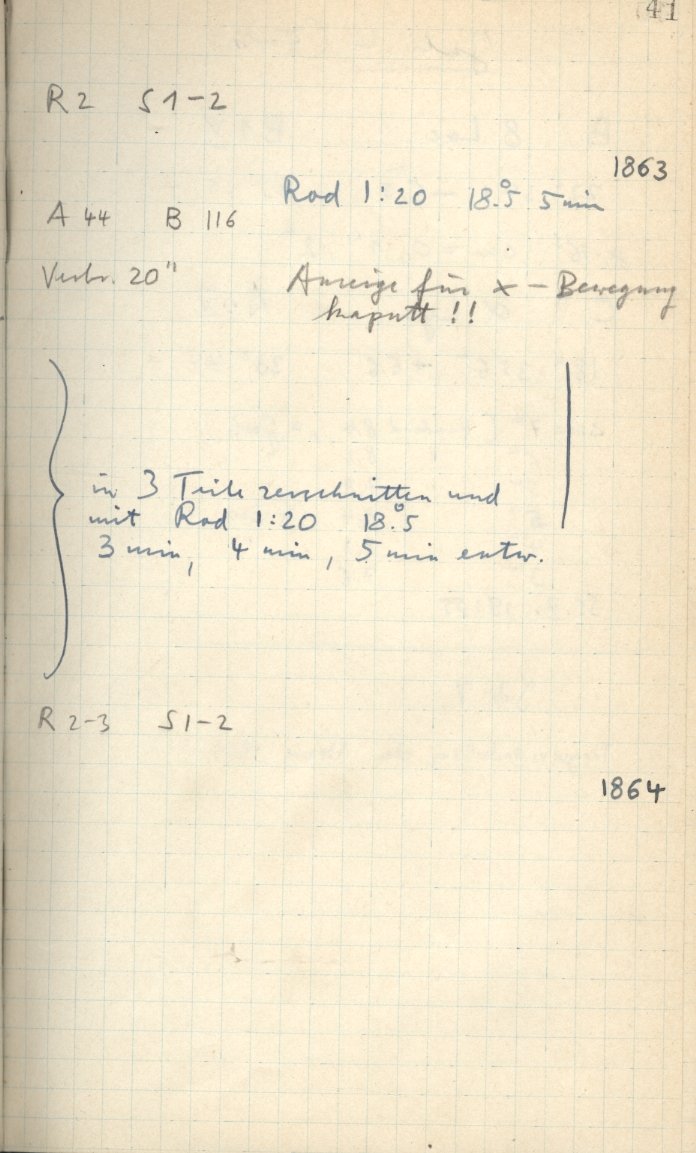 41
R 2 S 1-2
1863
Rod 1:20 18°.5 5 min
A 44 B 116
Verbr. 20"
Anzeige für x - Bewegung
kaputt !!
in 3 Teile zerschnitten und
mit Rod 1:20 18°.5
3 min, 4 min, 5 min entw.
R 2-3 S 1-2
1864